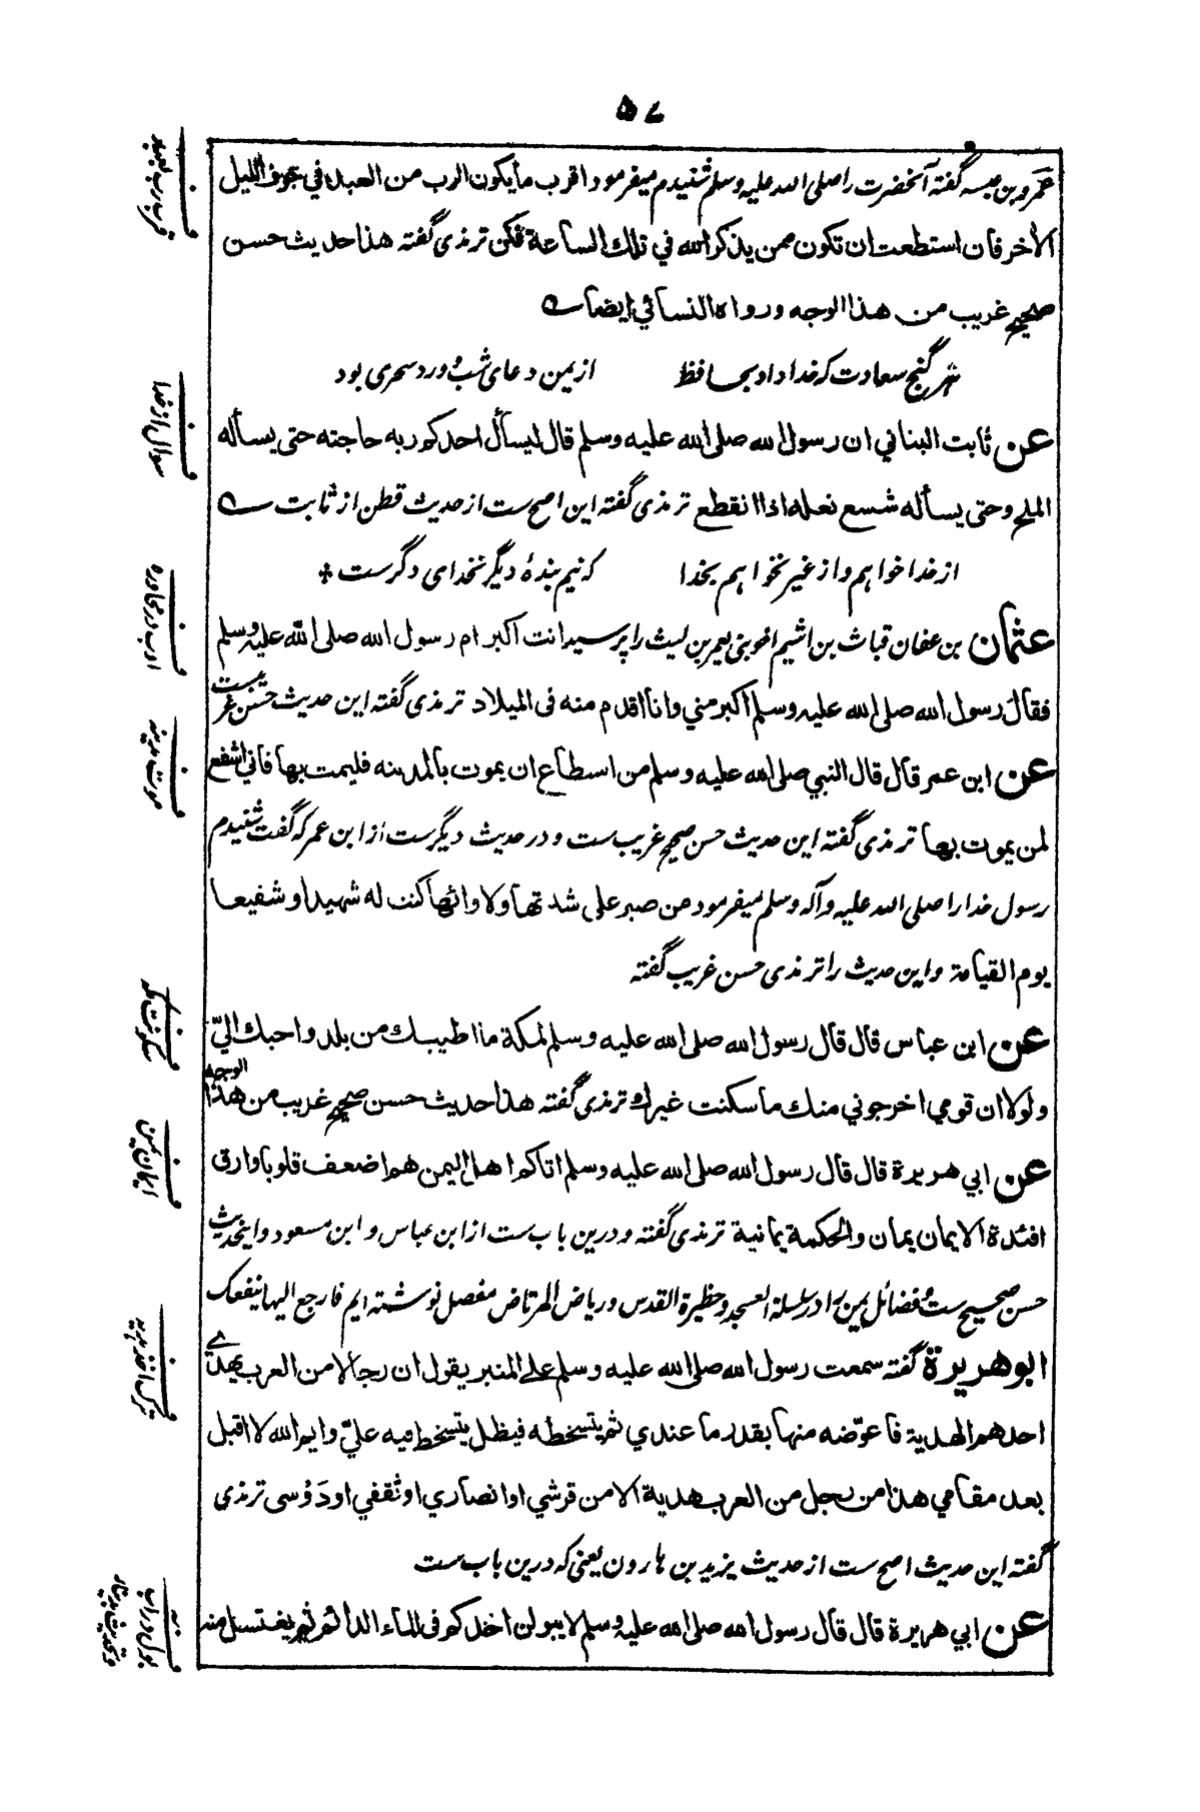 ٥٧
عمرو بن عبسه گفته آنحضرت را صلی الله علیه وسلم شنیدم میفرمود اقرب ما یکون الرب من العبد في جوف اللیل
الأخر فان استطعت ان تکون ممن یذکر الله في تلك الساعة فکن ترمذی گفته هذا حدیث حسن
صحیح غریب من هذا الوجه ورواه النسائي ایضا
هر گنج سعادت که خدا داد بحافظ
از یمن دعای شب و ورد سحری بود
عن ثابت البناني ان رسول الله صلی الله علیه وسلم قال لیسأل احدکم ربه حاجته حتی یسأله
الملح وحتی یسأله شسع نعله اذا انقطع ترمذی گفته این اصح ست از حدیث قطن از ثابت
از خدا خواهم واز غیر نخواهم بخدا
که نیم بندهٔ دیگر نخدای دگرست *
عثمان بن عفان قباث بن اشیم اخو بنی یعمر بن لیث را پرسید انت اکبر ام رسول الله صلی الله علیه وسلم
فقال رسول الله صلی الله علیه وسلم اکبر مني وانا اقدم منه فی المیلاد ترمذی گفته این حدیث حسن غریبست
عن ابن عمر قال قال النبي صلی الله علیه وسلم من استطاع ان یموت بالمدینه فلیمت بها فاني اشفع
لمن یموت بها ترمذی گفته این حدیث حسن صحیح غریب ست و در حدیث دیگرست از ابن عمر که گفت شنیدم
رسول خدا را صلی الله علیه وآله وسلم میفرمود من صبر علی شدتها ولاوائها کنت له شهیدا و شفیعا
یوم القیامة واین حدیث را ترمذی حسن غریب گفته
عن ابن عباس قال قال رسول الله صلی الله علیه وسلم لمکة ما اطیبك من بلد واحبك اليّ
ولولا ان قومي اخرجوني منك ما سکنت غیرك ترمذی گفته هذا حدیث حسن صحیح غریب من هذا الوجه
عن ابي هریرة قال قال رسول الله صلی الله علیه وسلم اتاکم اهل الیمن هم اضعف قلوبا وارق
افئدة الایمان یمان والحکمة یمانیة ترمذی گفته و درین باب ست از ابن عباس و ابن مسعود واینحدیث
حسن صحیح ست و فضائل یمن را در سلسلة العسجد و حظیرة القدس و ریاض المرتاض مفصل نوشته ایم فارجع الیها ینفعک
ابوهریرة گفته سمعت رسول الله صلی الله علیه وسلم علی المنبر یقول ان رجالا من العرب یهدي
احدهم الهدیة فاعوّضه منها بقدر ما عندي ثم یتسخطه فیظل یتسخط فیه عليّ وایم الله لا اقبل
بعد مقامي هذا من رجل من العرب هدیة الا من قرشي او انصاري او ثقفي او دَوْسی ترمذی
گفته این حدیث اصح ست از حدیث یزید بن هارون یعنی که درین باب ست
عن ابي هریرة قال قال رسول الله صلی الله علیه وسلم لا یبولن احدکم فی الماء الدائم ثم یغتسل منه
ف قرب رب بعبد
ف سوال از خدا
ف ادب در محاوره
ف موت مدینه
ف سکونت مکه
ف ایمان یمن
ف ترک اخذ هدیه
بول در آب